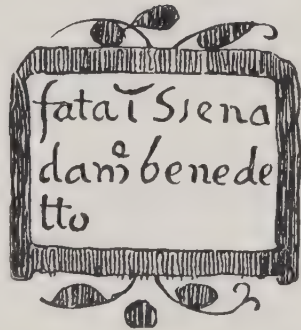 fata ĩ Siena
da mº benede
tto